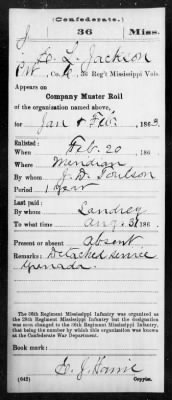 (Confederate.)
J 36 Miss.
L. Jackson
Pvt, Co. , 36 Reg't Mississippi Vols.
Appears on
Company Muster Roll
of the organization named above,
for Jan & Feb, 1863.
Enlisted:
When Feb. 20, 186
Where Meridian
By whom J. D. Poulson
Period 1 Year
Last paid:
By whom Landrey
To what time Aug. 31, 186
Present or absent Absent
Remarks: Detached service
Grenada.
The 36th Regiment Mississippi Infantry was organized as
the 28th Regiment Mississippi Infantry but the designation
was soon changed to the 36th Regiment Mississippi Infantry,
that being the number by which this organization was known at
the Confederate War Department.
Book mark:
(642) Copyist.